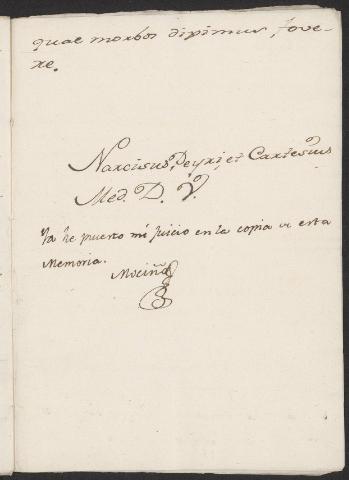 quae morbos dipimus, fove-
re.
Narcisus Peyri, et Cartesius
Med. D. V.
Ya he puesto mi juicio en la copia de esta
Memoria.
Mociño